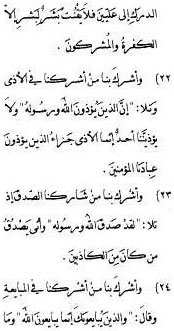 الدرك إلى عليين فلا يقنت بشر لبشر إلا
الكفرة والمشركون.
(٢٢ وأشرك بنا من أشركنا في الأذى
وتلا: "إن الذين يؤذون الله ورسوله" ولا
يؤذينا أحد إنما الأذى جزاء الذين يؤذون
عبادنا المؤمنين.
(٢٣ وأشرك بنا من شاركنا الصدق إذ
تلا: "لقد صدق الله ورسوله" وأنى يصدق
من كان من الكاذبين.
(٢٤ وأشرك بنا من أشركنا في المبايعة
وقال: "والذين يبايعونك إنما يبايعون الله" وما